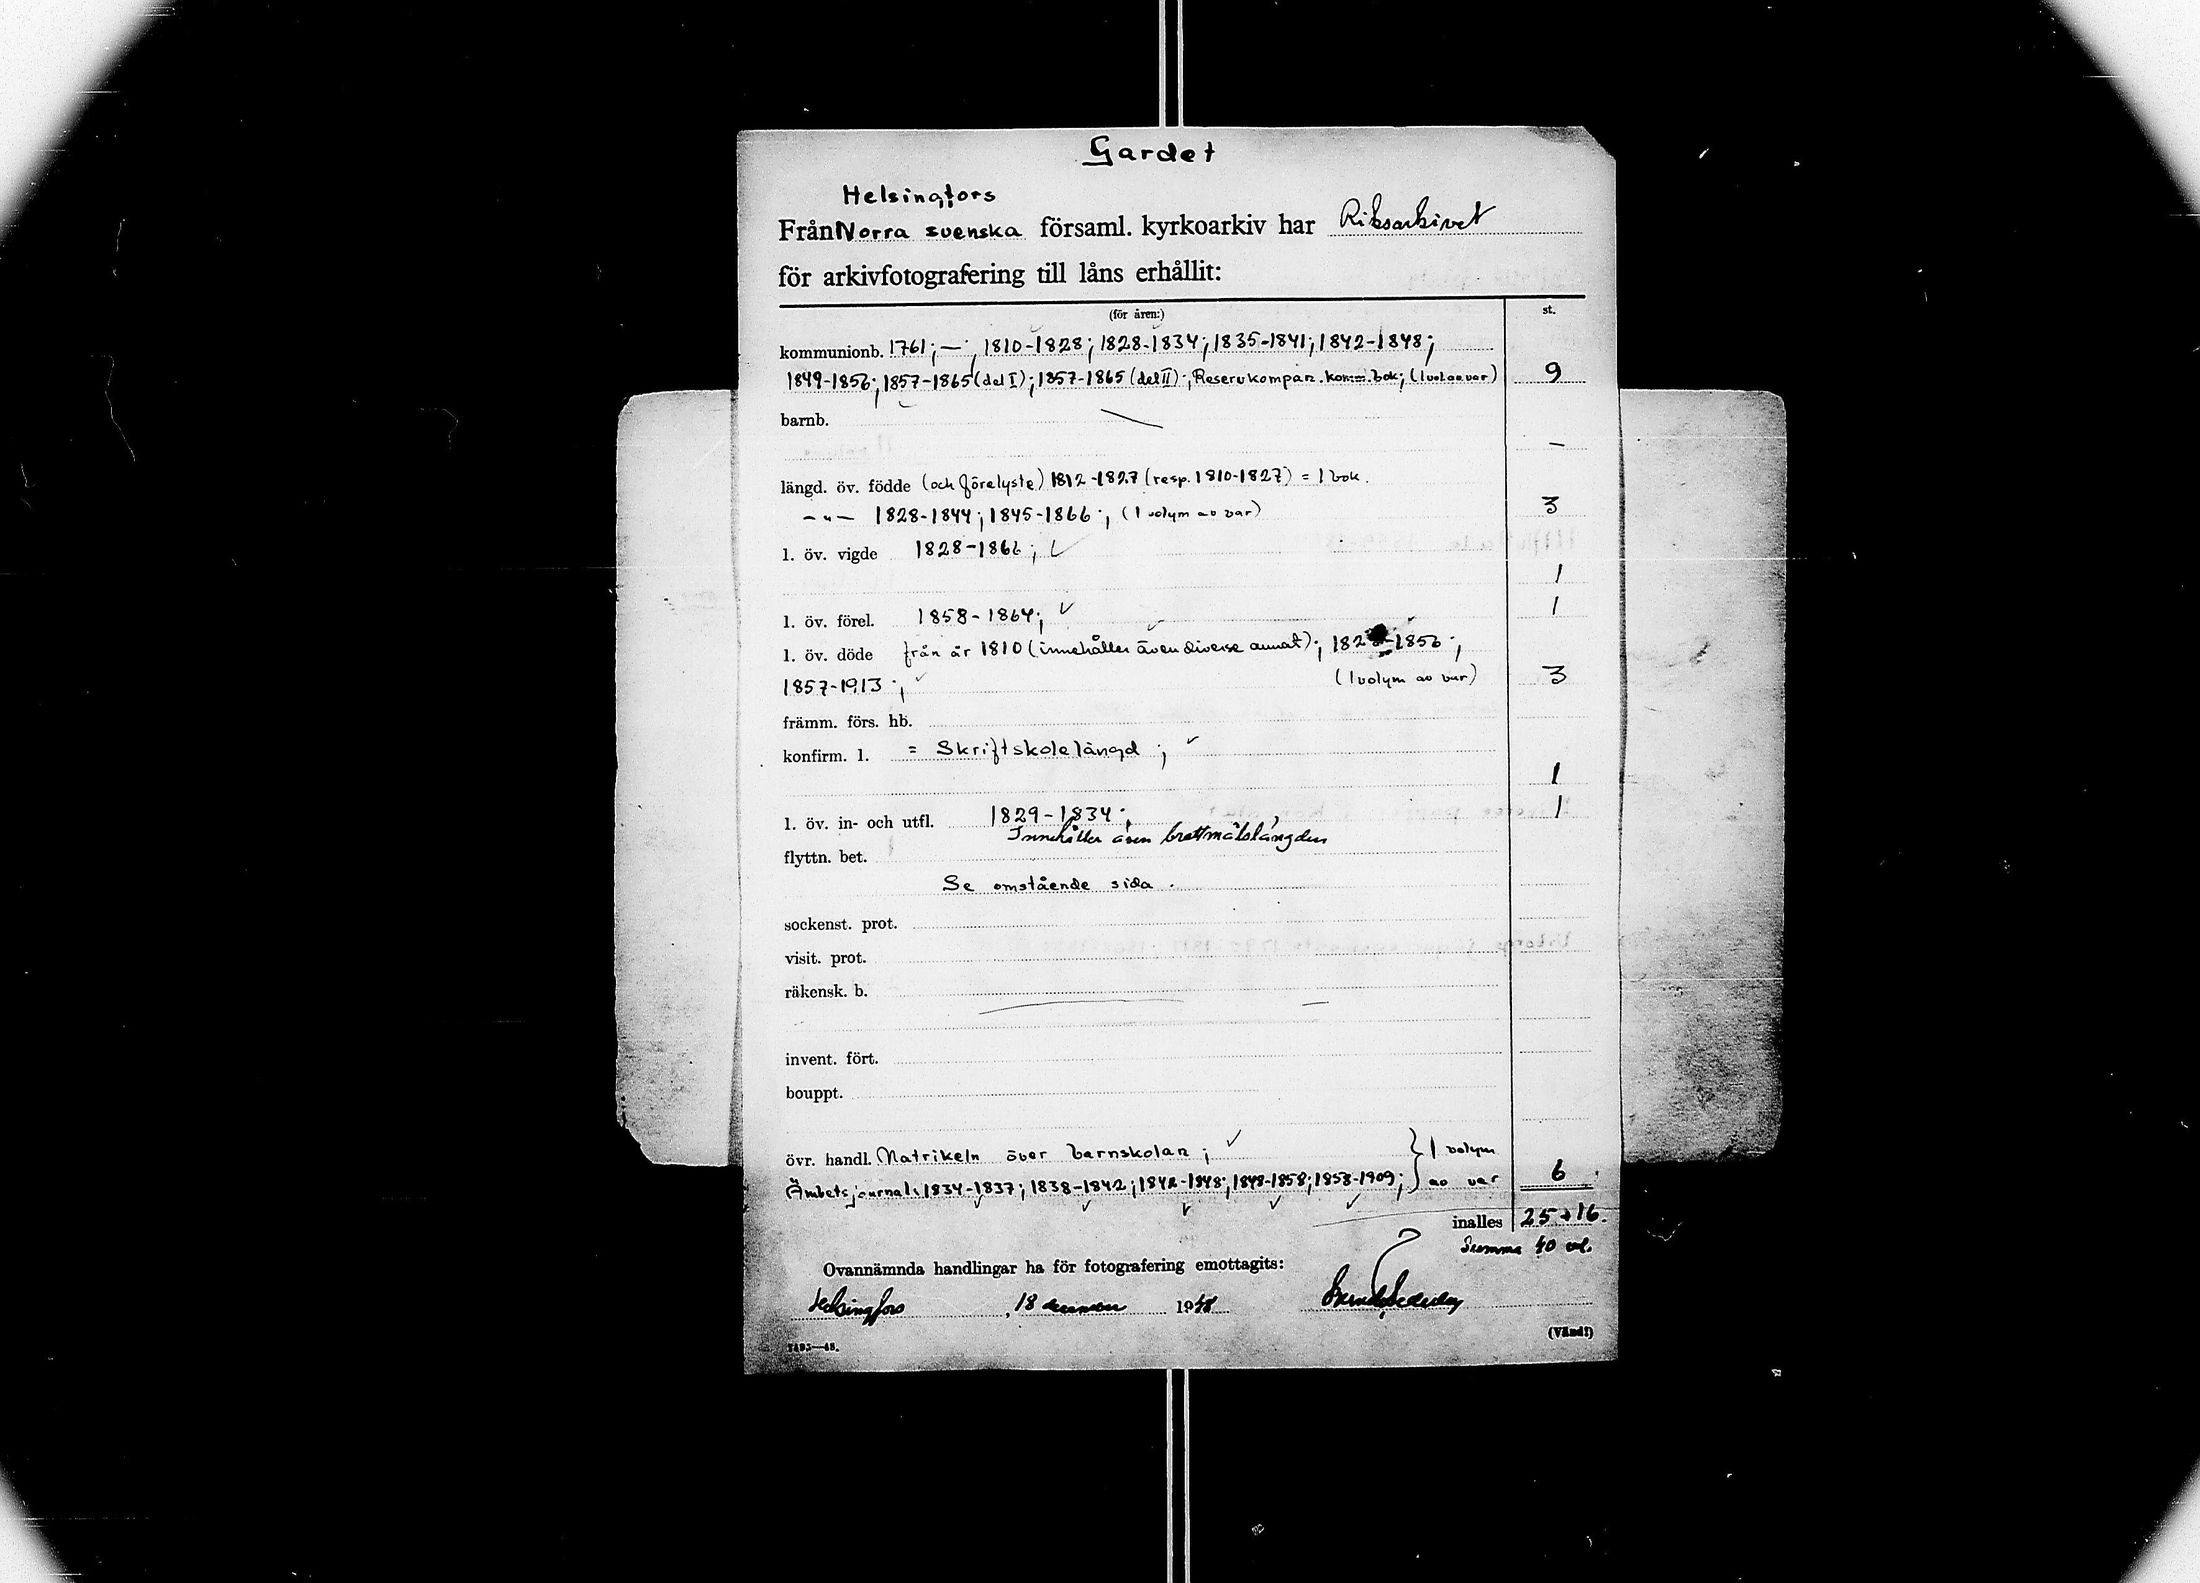 Gardet
Helsingfors
Från Norra svenska församl. kyrkoarkiv har Riksarkivet
för arkivfotografering till låns erhållit:
(för åren:) st.
kommunionb. 1761; — ; 1810-1828; 1828-1834; 1835-1841; 1842-1848;
1849-1856; 1857-1865 (del I); 1857-1865 (del II); Reservkompan. komm. bok; (1 vol av var) 9
barnb. —
–
längd. öv. födde (och förelyste) 1812-1827 (resp. 1810-1827) = 1 bok.
–"– 1828-1844; 1845-1866; (1 volym av var) 3
l. öv. vigde 1828-1866; ✓
1
l. öv. förel. 1858-1864; ✓ 1
l. öv. döde från år 1810 (innehåller även diverse annat); 1828-1856;
1857-1913; ✓ (1 volym av var) 3
främm. förs. hb.
konfirm. l. = Skriftskolelängd; ✓
1
l. öv. in- och utfl. 1829-1834; 1
Innehåller även brottmålslängden
flyttn. bet.
Se omstående sida.
sockenst. prot.
visit. prot.
räkensk. b.
invent. fört.
bouppt.
övr. handl. Matrikeln över barnskolan; ✓ } 1 volym
Ämbetsjournal: 1834-1837; 1838-1842; 1842-1848; 1848-1858; 1858-1909; av var 6
inalles 25 + 16.
Summa 40 vol.
Ovannämnda handlingar ha för fotografering emottagits:
Helsingfors, 18 december 1948
(Vänd!)